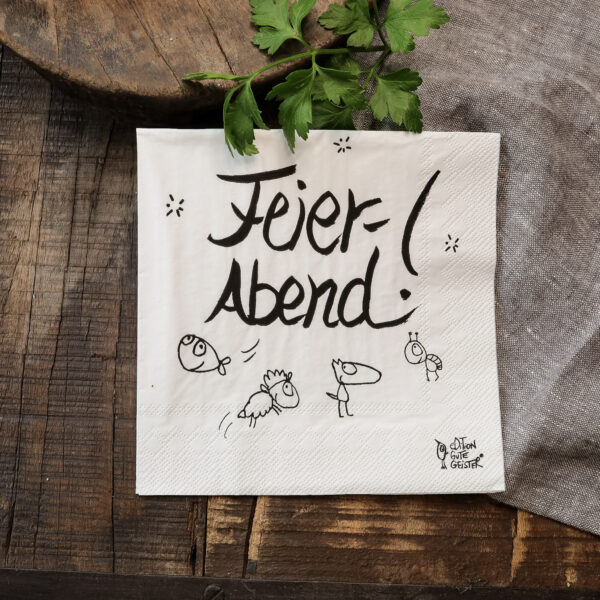 Feier-
Abend!
EDITION
GUTE
GEISTER